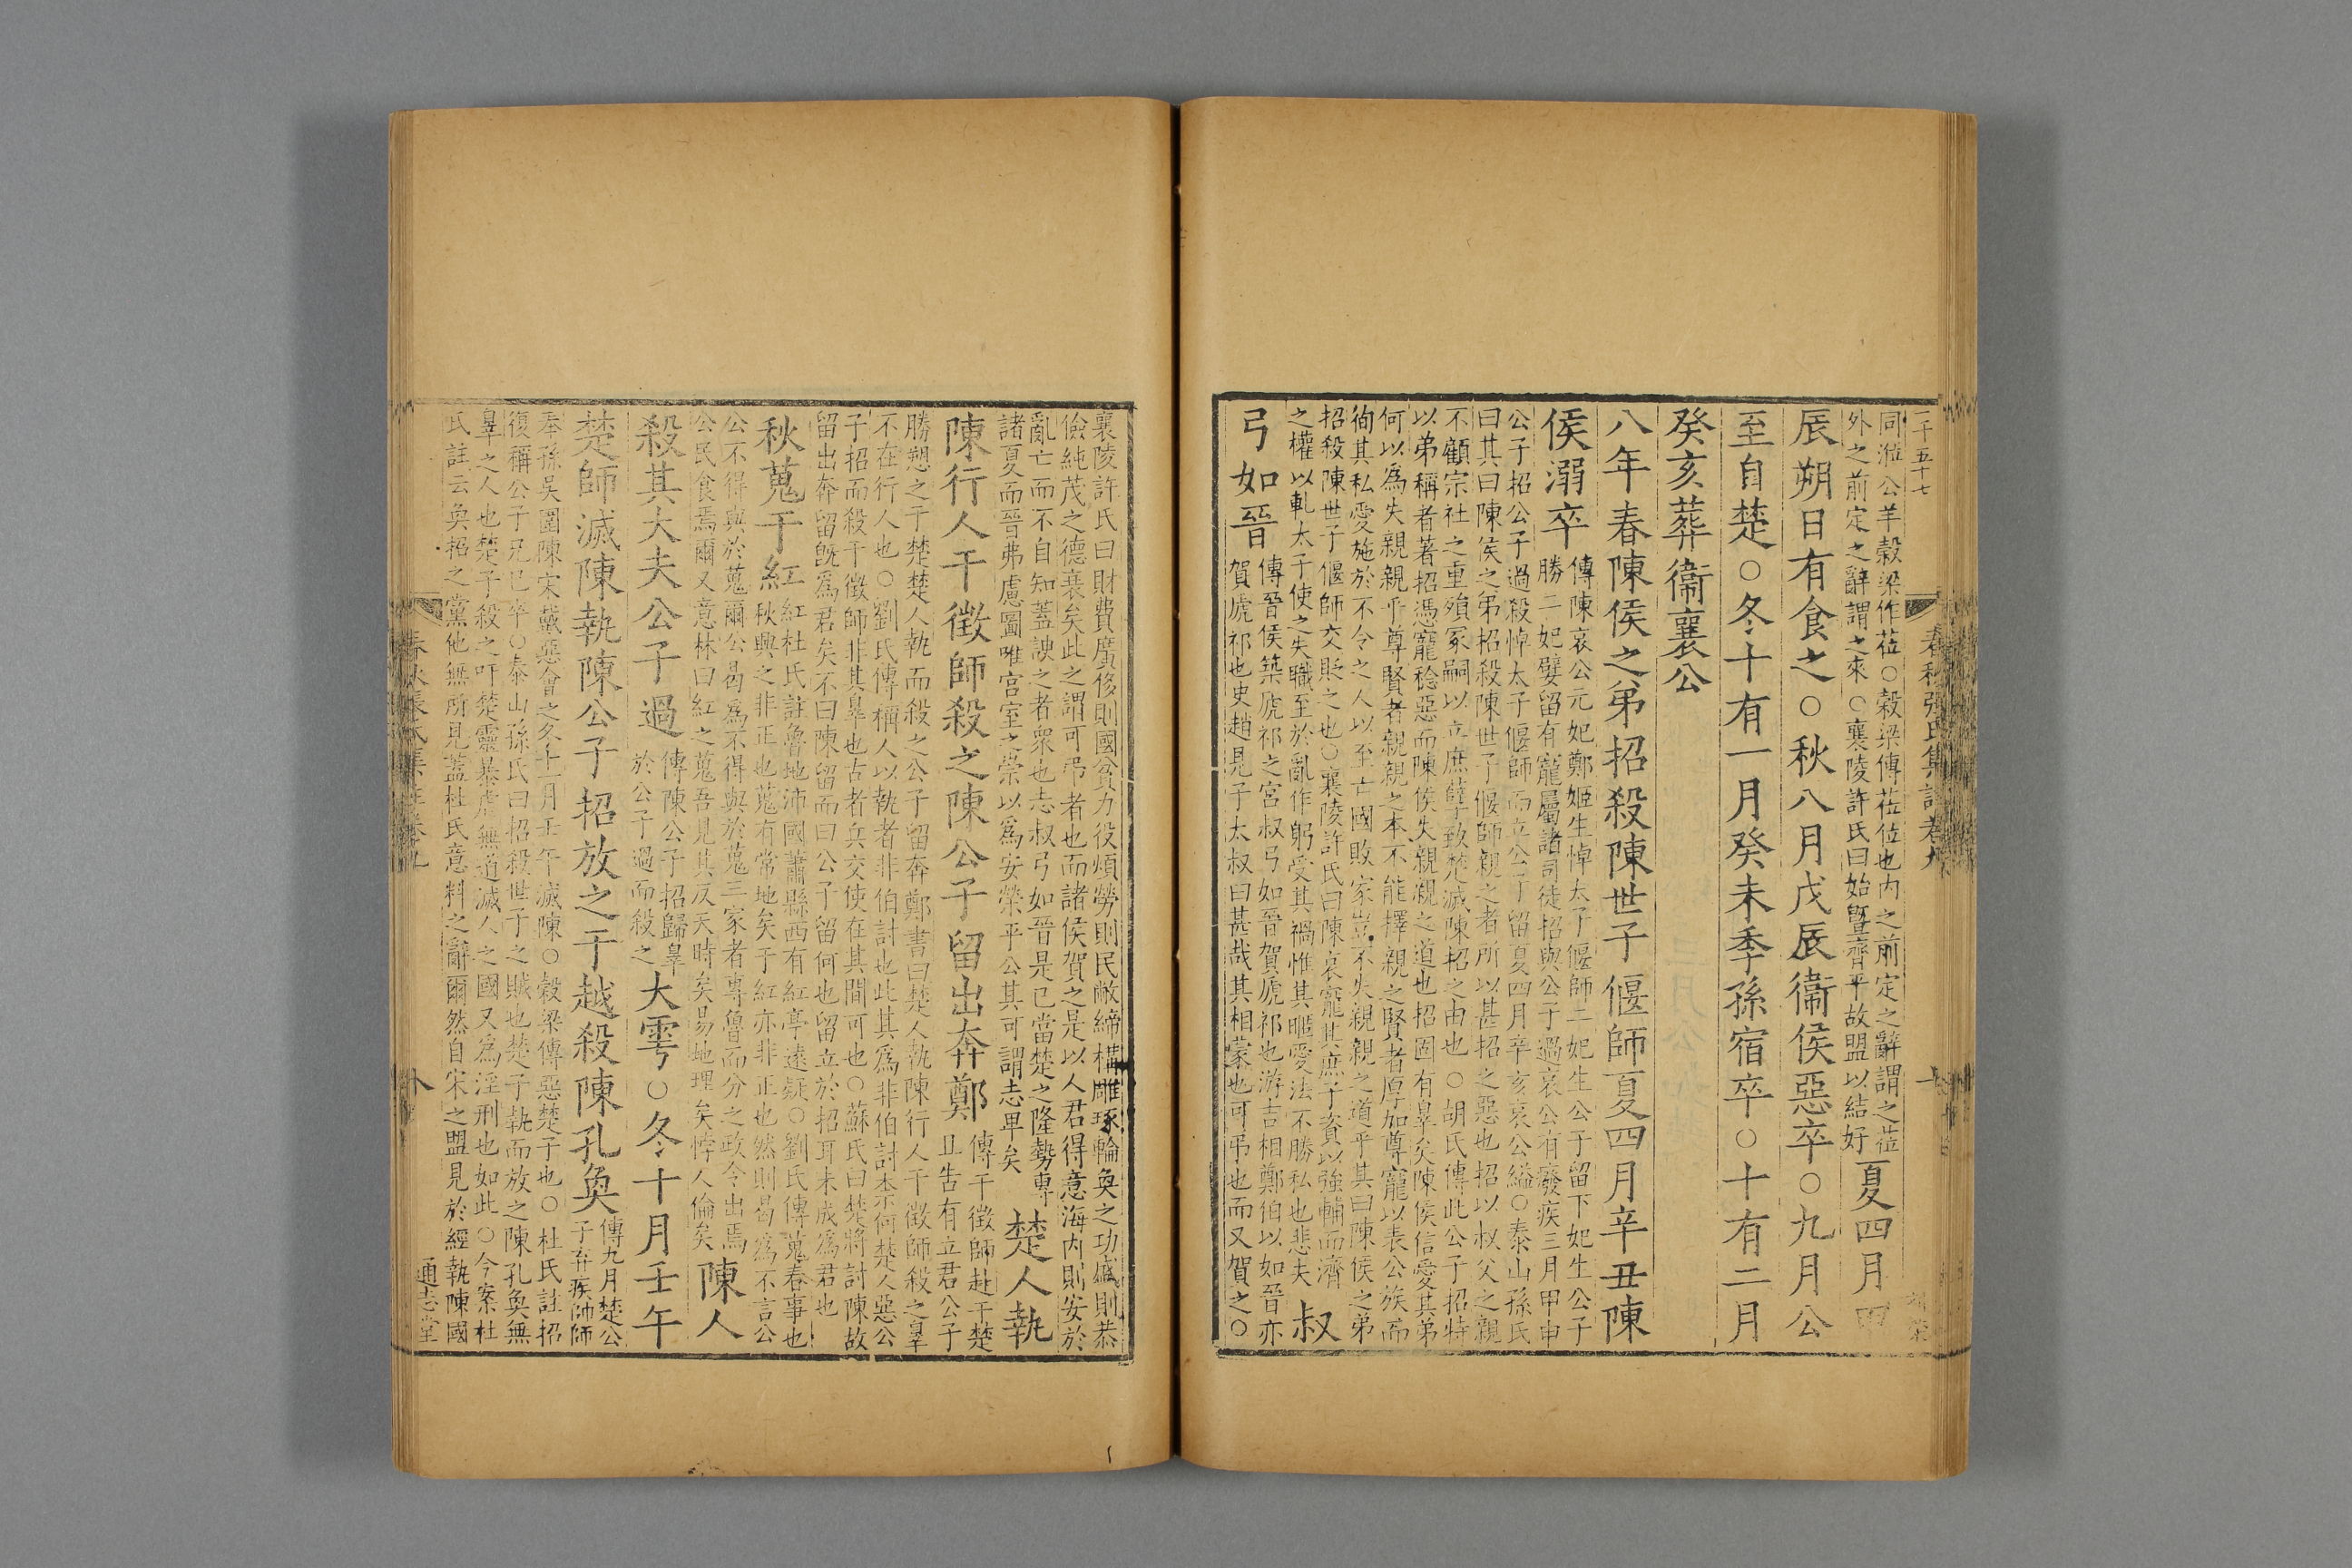 二千五十七
春秋張氏集註卷九
同涖公羊穀梁作莅○穀梁傳莅位也内之前定之辭謂之莅
外之前定之辭謂之來○襄陵許氏曰始曁齊平故盟以結好
夏四月甲
辰朔日有食之○秋八月戊辰衞侯惡卒○九月公
至自楚○冬十有一月癸未季孫宿卒○十有二月
癸亥葬衞襄公
八年春陳侯之弟招殺陳世子偃師夏四月辛丑陳
侯溺卒
傳陳哀公元妃鄭姬生悼太子偃師二妃生公子留下妃生公子
勝二妃嬖留有寵屬諸司徒招與公子過哀公有癈疾三月甲申
公子招公子過殺悼太子偃師而立公子留夏四月辛亥哀公縊○泰山孫氏
曰其曰陳侯之弟招殺陳世子偃師親之者所以甚招之惡也招以叔父之親
不顧宗社之重殞冢嗣以立庶孽致楚滅陳招之由也○胡氏傳此公子招特
以弟稱者著招馮寵稔惡而陳侯失親親之道也招固有辠矣陳侯信愛其弟
何以爲失親親乎尊賢者親親之本不能擇親之賢者厚加尊寵以表公族而
徇其私愛施於不令之人以至亡國敗家豈不失親親之道乎其曰陳侯之弟
招殺陳世子偃師交貶之也○襄陵許氏曰陳哀寵其庶子資以強輔而濟
之權以軋太子使之失職至於亂作躬受其禍惟其暱愛法不勝私也悲夫
叔
弓如晉
傳晉侯築虒祁之宮叔弓如晉賀虒祁也游吉相鄭伯以如晉亦
賀虒祁也史趙見子太叔曰甚哉其相蒙也可弔也而又賀之○
襄陵許氏曰財費廣侈則國貧力役煩勞則民敝締構雕琢輪奐之功盛則恭
儉純茂之德衰矣此之謂可弔者也而諸侯賀之是以人君得意海内則安於
亂亡而不自知蓋諛之者衆也志叔弓如晉是已當楚之隆勢專
諸夏而晉弗慮圖唯宮室之崇以爲安榮平公其可謂志畢矣
楚人執
陳行人干徵師殺之陳公子留出奔鄭
傳干徵師赴于楚
且告有立君公子
勝愬之于楚楚人執而殺之公子留奔鄭書曰楚人執陳行人干徵師殺之辠
不在行人也○劉氏傳稱人以執者非伯討也此其爲非伯討柰何楚人惡公
子招而殺干徵師非其辠也古者兵交使在其間可也○蘇氏曰楚將討陳故
留出奔留旣爲君矣不曰陳留而曰公子留何也留立於招耳未成爲君也
秋蒐于紅
紅杜氏註魯地沛國蕭縣西有紅亭遠疑○劉氏傳蒐春事也
秋興之非正也蒐有常地矣于紅亦非正也然則曷爲不言公
公不得與於蒐爾公曷爲不得與於蒐三家者專魯而分之政令出焉
公民食焉爾又意林曰紅之蒐吾見其反天時矣易地理矣悖人倫矣
陳人
殺其大夫公子過
傳陳公子招歸辠
於公子過而殺之
大雩○冬十月壬午
楚師滅陳執陳公子招放之于越殺陳孔奐
傳九月楚公
子弃疾帥師
奉孫吳圍陳宋戴惡會之冬十一月壬午滅陳○穀梁傳惡楚子也○杜氏註招
復稱公子兄已卒○泰山孫氏曰招殺世子之賊也楚子執而放之陳孔奐無
辠之人也楚子殺之吁楚靈暴虐無道滅人之國又爲淫刑也如此○今案杜
氏註云奐招之黨他無所見蓋杜氏意料之辭爾然自宋之盟見於經執陳國
春秋張氏集註卷九
通志堂